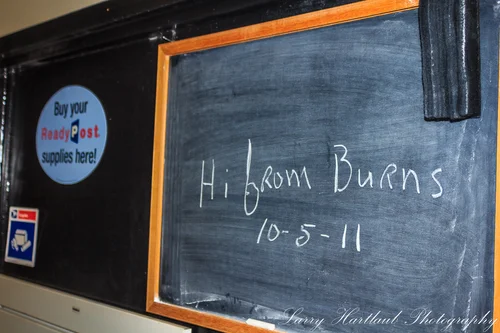 Buy your
ReadyPost
supplies here!
Hi from Burns
10-5-11
Larry Hartlaub Photography